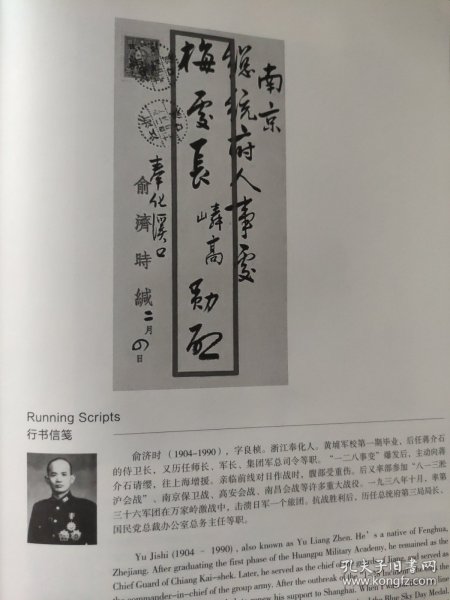 南京
總統府人事處
梅處長
嶙高
勛啟
奉化溪口
俞濟時緘
二月
日
Running Scripts
行书信笺
俞济时（1904-1990），字良桢。浙江奉化人。黄埔军校第一期毕业、后任蒋介石
的侍卫长，又历任师长、军长、集团军总司令等职。“一二八事变”爆发后，主动向蒋
介石请缨，往上海增援。亲临前线对日作战时，腹部受重伤。后又率部参加“八一三淞
沪会战”、南京保卫战、高安会战、南昌会战等许多重大战役。一九三八年十月，率第
三十六军团在万家岭激战中，击溃日军一个旅团。抗战胜利后，历任总统府第三局局长、
国民党总裁办公室总务主任等职。
Yu Jishi (1904 - 1990), also known as Yu Liang Zhen. He's a native of Fenghua,
Zhejiang. After graduating the first phase of the Huangpu Military Academy, he remained as the
Chief Guard of Chiang Kai-shek. Later, he served as the chief of
the commander-in-chief of the group army. After the outbreak of
to renew his support to Shanghai. When
the Blue Sky Day Medal.
孔夫子旧书网